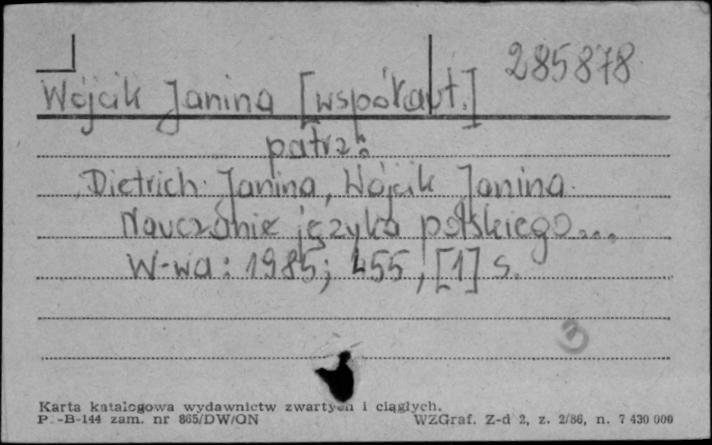 285878
Wójcik Janina [współaut.]
patrz:
Dietrich Janina, Wójcik Janina.
Nauczanie języka polskiego...
W-wa: 1985; 455, [1] s.
3
Karta katalogowa wydawnictw zwartych i ciągłych.
P.-B-144 zam. nr 865/DW/ON WZGraf. Z-d 2, z. 2/86, n. 7 430 000